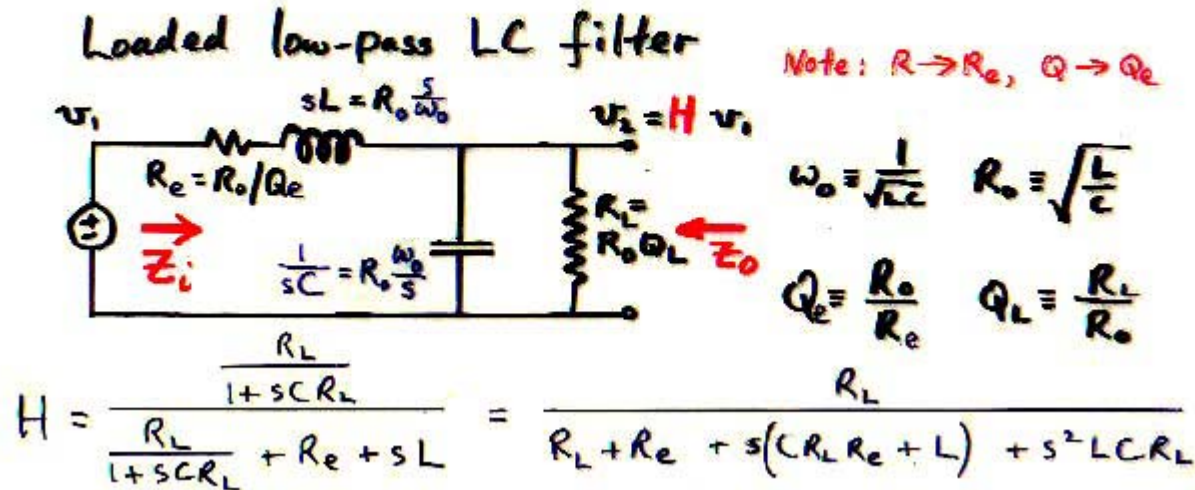 Loaded low-pass LC filter
Note: R → Rₑ, Q → Qₑ
v₁
sL = R₀ s/ω₀
v₂ = H v₁
Rₑ = R₀/Qₑ
ω₀ ≡ 1/√LC R₀ ≡ √(L/C)
Zᵢ
1/sC = R₀ ω₀/s
R_L =
R₀Q_L
Z₀
Qₑ ≡ R₀/Rₑ Q_L ≡ R_L/R₀
H = (R_L/(1+sCR_L)) / (R_L/(1+sCR_L) + Rₑ + sL) = R_L / (R_L + Rₑ + s(CR_L Rₑ + L) + s²LCR_L)